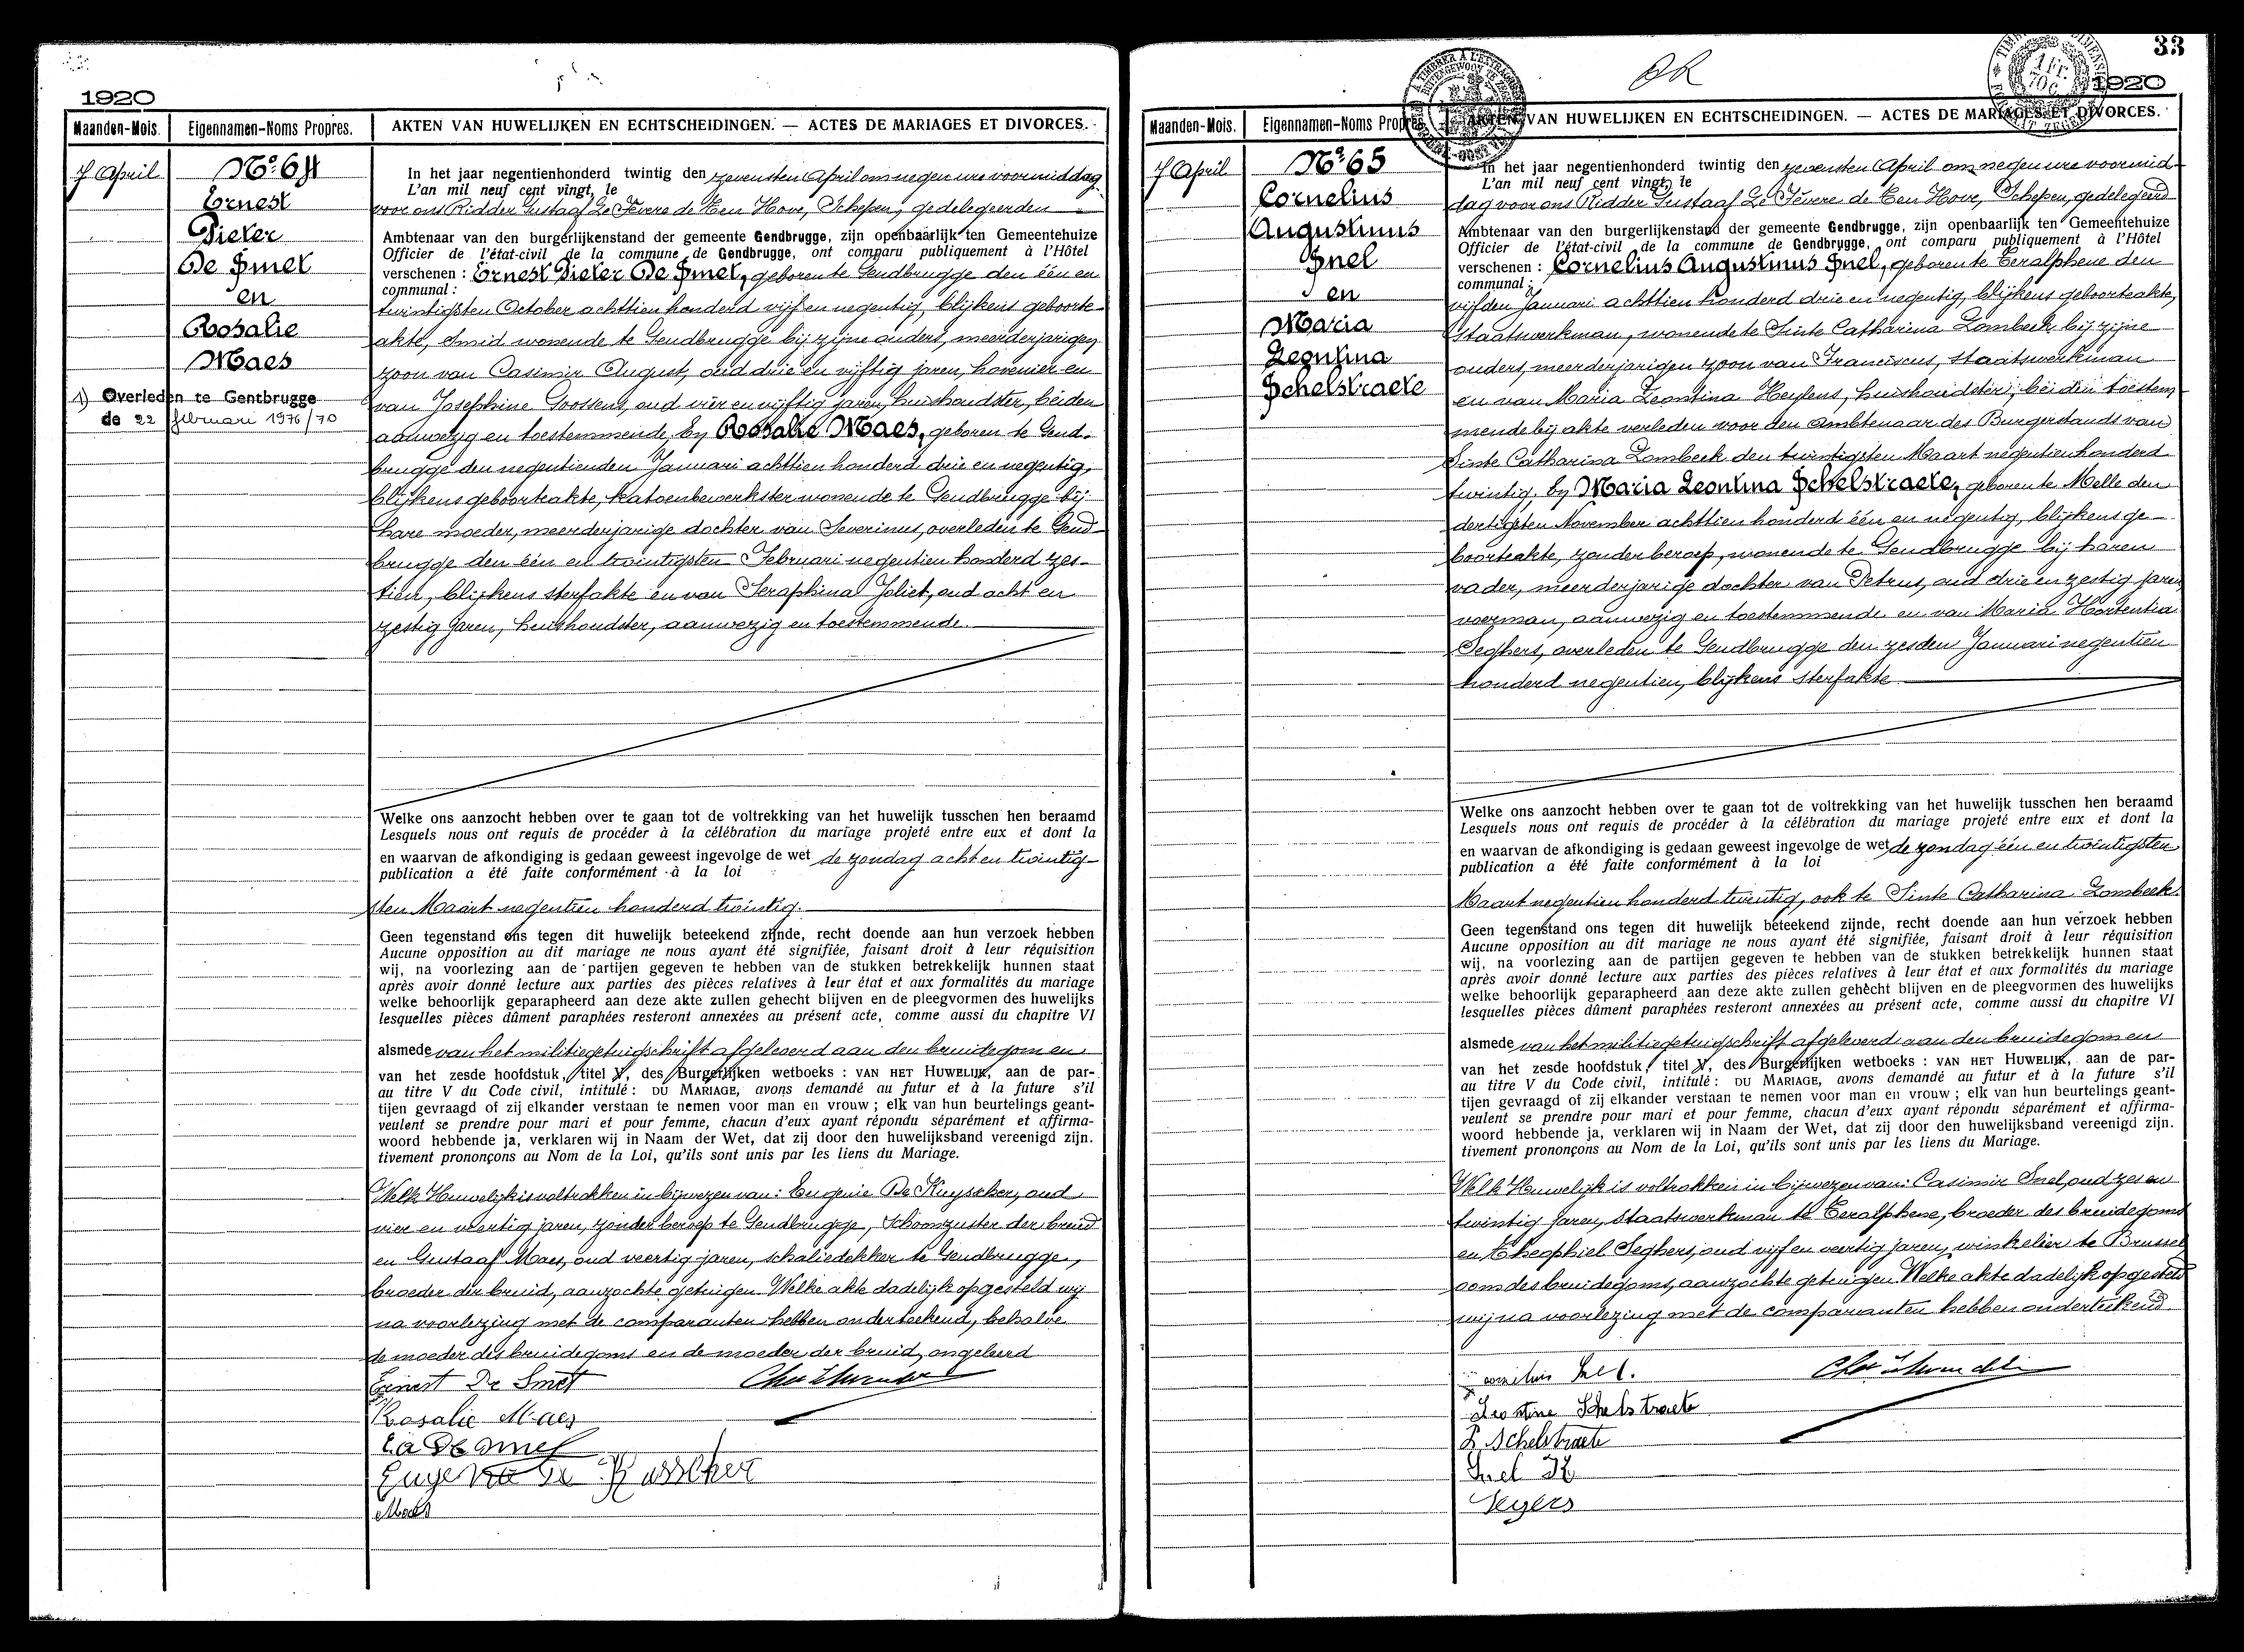 1920
Maanden-Mois. Eigennamen-Noms Propres. AKTEN VAN HUWELIJKEN EN ECHTSCHEIDINGEN. — ACTES DE MARIAGES ET DIVORCES.
7 April
No. 64
Ernest
Pieter
De Smet
en
Rosalie
Maes
1) Overleden te Gentbrugge
de 22 februari 1976/70
In het jaar negentienhonderd twintig den zevensten April om negen ure voormiddag
L'an mil neuf cent vingt, le
voor ons Ridder Gustaaf Le Fevere de Ten Hove, Schepen, gedelegeerden
Ambtenaar van den burgerlijkenstand der gemeente Gendbrugge, zijn openbaarlijk ten Gemeentehuize
Officier de l'état-civil de la commune de Gendbrugge, ont comparu publiquement à l'Hôtel
verschenen : Ernest Pieter De Smet, geboren te Gendbrugge den één en
communal :
twintigsten October achttien honderd vijf en negentig, blijkens geboorte-
akte, smid wonende te Gendbrugge bij zijne ouders, meerderjarigen
zoon van Casimir August, oud drie en vijftig jaren, hovenier en
van Josephine Goossens, oud vier en vijftig jaren, huishoudster, beiden
aanwezig en toestemmende, by Rosalie Maes, geboren te Gend-
brugge den negentienden Januari achttien honderd drie en negentig,
blijkens geboorteakte, katoenbewerkster wonende te Gendbrugge bij
hare moeder, meerderjarige dochter van Severinus, overleden te Gend-
brugge den één en twintigsten Februari negentien honderd zes-
tien, blijkens sterfakte en van Seraphina Joliet, oud acht en
zestig jaren, huishoudster, aanwezig en toestemmende.
Welke ons aanzocht hebben over te gaan tot de voltrekking van het huwelijk tusschen hen beraamd
Lesquels nous ont requis de procéder à la célébration du mariage projeté entre eux et dont la
en waarvan de afkondiging is gedaan geweest ingevolge de wet de zondag acht en twintig-
publication a été faite conformément à la loi
sten Maart negentien honderd twintig.
Geen tegenstand ons tegen dit huwelijk beteekend zijnde, recht doende aan hun verzoek hebben
Aucune opposition au dit mariage ne nous ayant été signifiée, faisant droit à leur réquisition
wij, na voorlezing aan de partijen gegeven te hebben van de stukken betrekkelijk hunnen staat
après avoir donné lecture aux parties des pièces relatives à leur état et aux formalités du mariage
welke behoorlijk geparapheerd aan deze akte zullen gehecht blijven en de pleegvormen des huwelijks
lesquelles pièces dûment paraphées resteront annexées au présent acte, comme aussi du chapitre VI
alsmede van het militiegetuigschrift afgeleverd aan den bruidegom en
van het zesde hoofdstuk, titel V, des Burgerlijken wetboeks : VAN HET HUWELIJK, aan de par-
au titre V du Code civil, intitulé : DU MARIAGE, avons demandé au futur et à la future s'il
tijen gevraagd of zij elkander verstaan te nemen voor man en vrouw ; elk van hun beurtelings geant-
veulent se prendre pour mari et pour femme, chacun d'eux ayant répondu séparément et affirma-
woord hebbende ja, verklaren wij in Naam der Wet, dat zij door den huwelijksband vereenigd zijn.
tivement prononçons au Nom de la Loi, qu'ils sont unis par les liens du Mariage.
Welk Huwelijk is voltrokken in bijwezen van : Eugenie De Kuysscher, oud
vier en veertig jaren, zonder beroep te Gendbrugge, schoonzuster der bruid
en Gustaaf Maes, oud veertig jaren, schaliedekker te Gendbrugge,
broeder der bruid, aanzochte getuigen Welke akte dadelijk opgesteld wij
na voorlezing met de comparanten hebben onderteekend, behalve
de moeder des bruidegoms en de moeder der bruid, ongeleerd
Ernest De Smet
Rosalie Maes
Maes
33
1920
Maanden-Mois. Eigennamen-Noms Propres. AKTEN VAN HUWELIJKEN EN ECHTSCHEIDINGEN. — ACTES DE MARIAGES ET DIVORCES.
7 April
No. 65
Cornelius
Augustinus
Snel
en
Maria
Leontina
Schelstraete
In het jaar negentienhonderd twintig den zevensten April om negen ure voormid-
L'an mil neuf cent vingt, le
dag voor ons Ridder Gustaaf Le Fevere de Ten Hove, Schepen, gedelegeerd
Ambtenaar van den burgerlijkenstand der gemeente Gendbrugge, zijn openbaarlijk ten Gemeentehuize
Officier de l'état-civil de la commune de Gendbrugge, ont comparu publiquement à l'Hôtel
verschenen : Cornelius Augustinus Snel, geboren te Teralphene den
communal :
vijfden Januari achttien honderd drie en negentig, blijkens geboorteakte,
Staatswerkman, wonende te Sinte Catharina Lombeek bij zijne
ouders, meerderjarigen zoon van Franciscus, staatswerkman
en van Maria Leontina Heylens, huishoudster, beiden toestem-
mende bij akte verleden voor den Ambtenaar des Burgerstands van
Sinte Catharina Lombeek den twintigsten Maart negentienhonderd
twintig, by Maria Leontina Schelstraete, geboren te Melle den
dertigsten November achttien honderd één en negentig, blijkens ge-
boorteakte, zonder beroep, wonende te Gendbrugge bij haren
vader, meerderjarige dochter van Petrus, oud drie en zestig jaren
voerman, aanwezig en toestemmende en van Maria Hortentia
Seghers, overleden te Gendbrugge den zesden Januari negentien
honderd negentien, blijkens sterfakte
Welke ons aanzocht hebben over te gaan tot de voltrekking van het huwelijk tusschen hen beraamd
Lesquels nous ont requis de procéder à la célébration du mariage projeté entre eux et dont la
en waarvan de afkondiging is gedaan geweest ingevolge de wet de zondag één en twintigsten
publication a été faite conformément à la loi
Maart negentien honderd twintig, ook te Sinte Catharina Lombeek.
Geen tegenstand ons tegen dit huwelijk beteekend zijnde, recht doende aan hun verzoek hebben
Aucune opposition au dit mariage ne nous ayant été signifiée, faisant droit à leur réquisition
wij, na voorlezing aan de partijen gegeven te hebben van de stukken betrekkelijk hunnen staat
après avoir donné lecture aux parties des pièces relatives à leur état et aux formalités du mariage
welke behoorlijk geparapheerd aan deze akte zullen gehecht blijven en de pleegvormen des huwelijks
lesquelles pièces dûment paraphées resteront annexées au présent acte, comme aussi du chapitre VI
alsmede van het militiegetuigschrift afgeleverd aan den bruidegom en
van het zesde hoofdstuk, titel V, des Burgerlijken wetboeks : VAN HET HUWELIJK, aan de par-
au titre V du Code civil, intitulé : DU MARIAGE, avons demandé au futur et à la future s'il
tijen gevraagd of zij elkander verstaan te nemen voor man en vrouw ; elk van hun beurtelings geant-
veulent se prendre pour mari et pour femme, chacun d'eux ayant répondu séparément et affirma-
woord hebbende ja, verklaren wij in Naam der Wet, dat zij door den huwelijksband vereenigd zijn.
tivement prononçons au Nom de la Loi, qu'ils sont unis par les liens du Mariage.
Welk Huwelijk is voltrokken in bijwezen van : Casimir Snel, oud zes en
twintig jaren, Staatswerkman te Teralphene, broeder des bruidegoms
en Theophiel Seghers, oud vijf en veertig jaren, winkelier te Brussel
oom des bruidegoms, aanzochte getuigen Welke akte dadelijk opgesteld
wij na voorlezing met de comparanten hebben onderteekend
Snel.
Leontine Schelstraete
P. Schelstraete
Snel
Segers